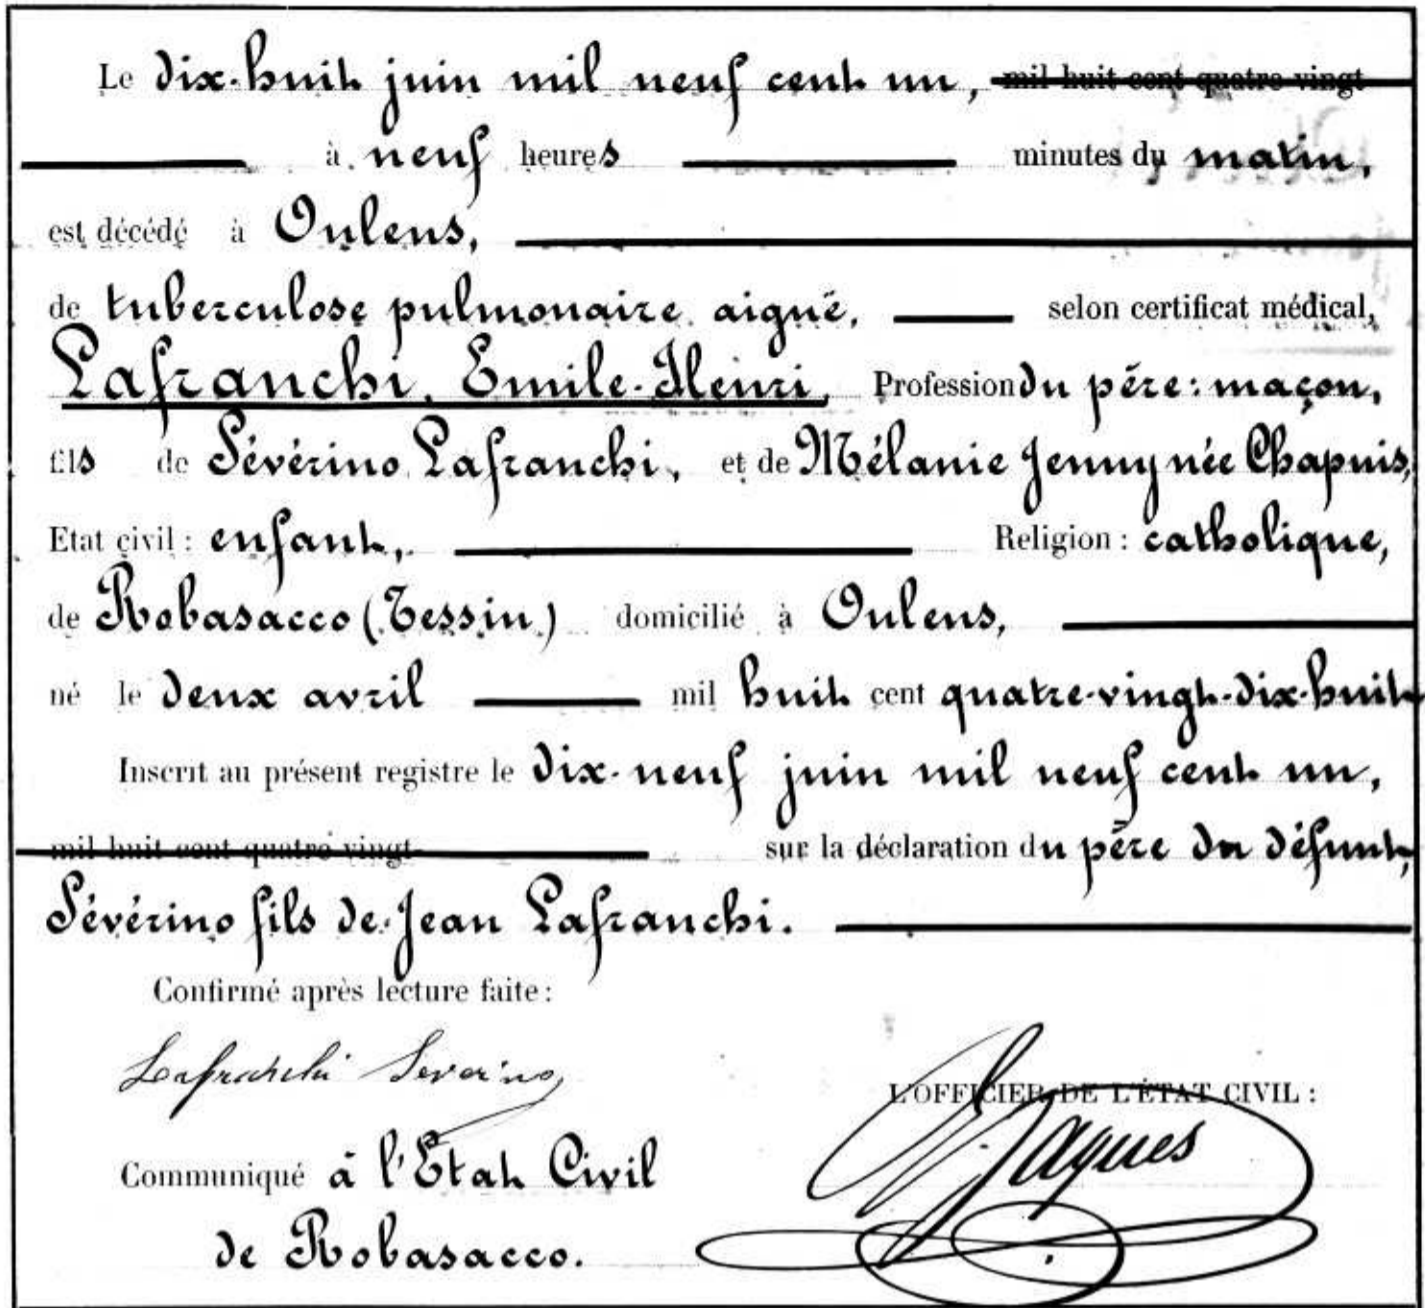 Le dix-huit juin mil neuf cent un, mil huit cent quatre-vingt
à neuf heures minutes du matin,
est décédé à Oulens,
de tuberculose pulmonaire aiguë, selon certificat médical,
Lafranchi, Emile-Henri, Profession du père: maçon,
fils de Sévérino Lafranchi, et de Mélanie Jenny née Chapuis,
Etat civil: enfant, Religion: catholique,
de Robasacco (Tessin) domicilié à Oulens,
né le deux avril mil huit cent quatre-vingt-dix-huit
Inscrit au présent registre le dix-neuf juin mil neuf cent un,
mil huit cent quatre-vingt- sur la déclaration du père du défunt,
Sévérino fils de Jean Lafranchi.
Confirmé après lecture faite:
Lafranchi Severino
L'OFFICIER DE L'ÉTAT CIVIL:
Jaques
Communiqué à l'Etat Civil
de Robasacco.